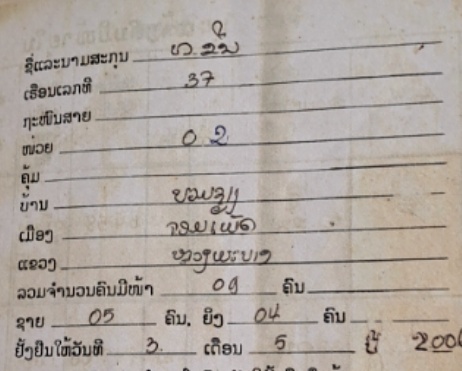 ຊື່ແລະນາມສະກຸນ ທ. ຂັນ
ເຮືອນເລກທີ 37
ຖະໜົນສາຍ
ໜ່ວຍ 02
ຄຸ້ມ
ບ້ານ
ເມືອງ ຈອມເພັດ
ແຂວງ ຫລວງພະບາງ
ລວມຈຳນວນຄົນມີໜ້າ 09 ຄົນ
ຊາຍ 05 ຄົນ, ຍິງ 04 ຄົນ
ຢັ້ງຢືນໃຫ້ວັນທີ 3. ເດືອນ 5 ປີ